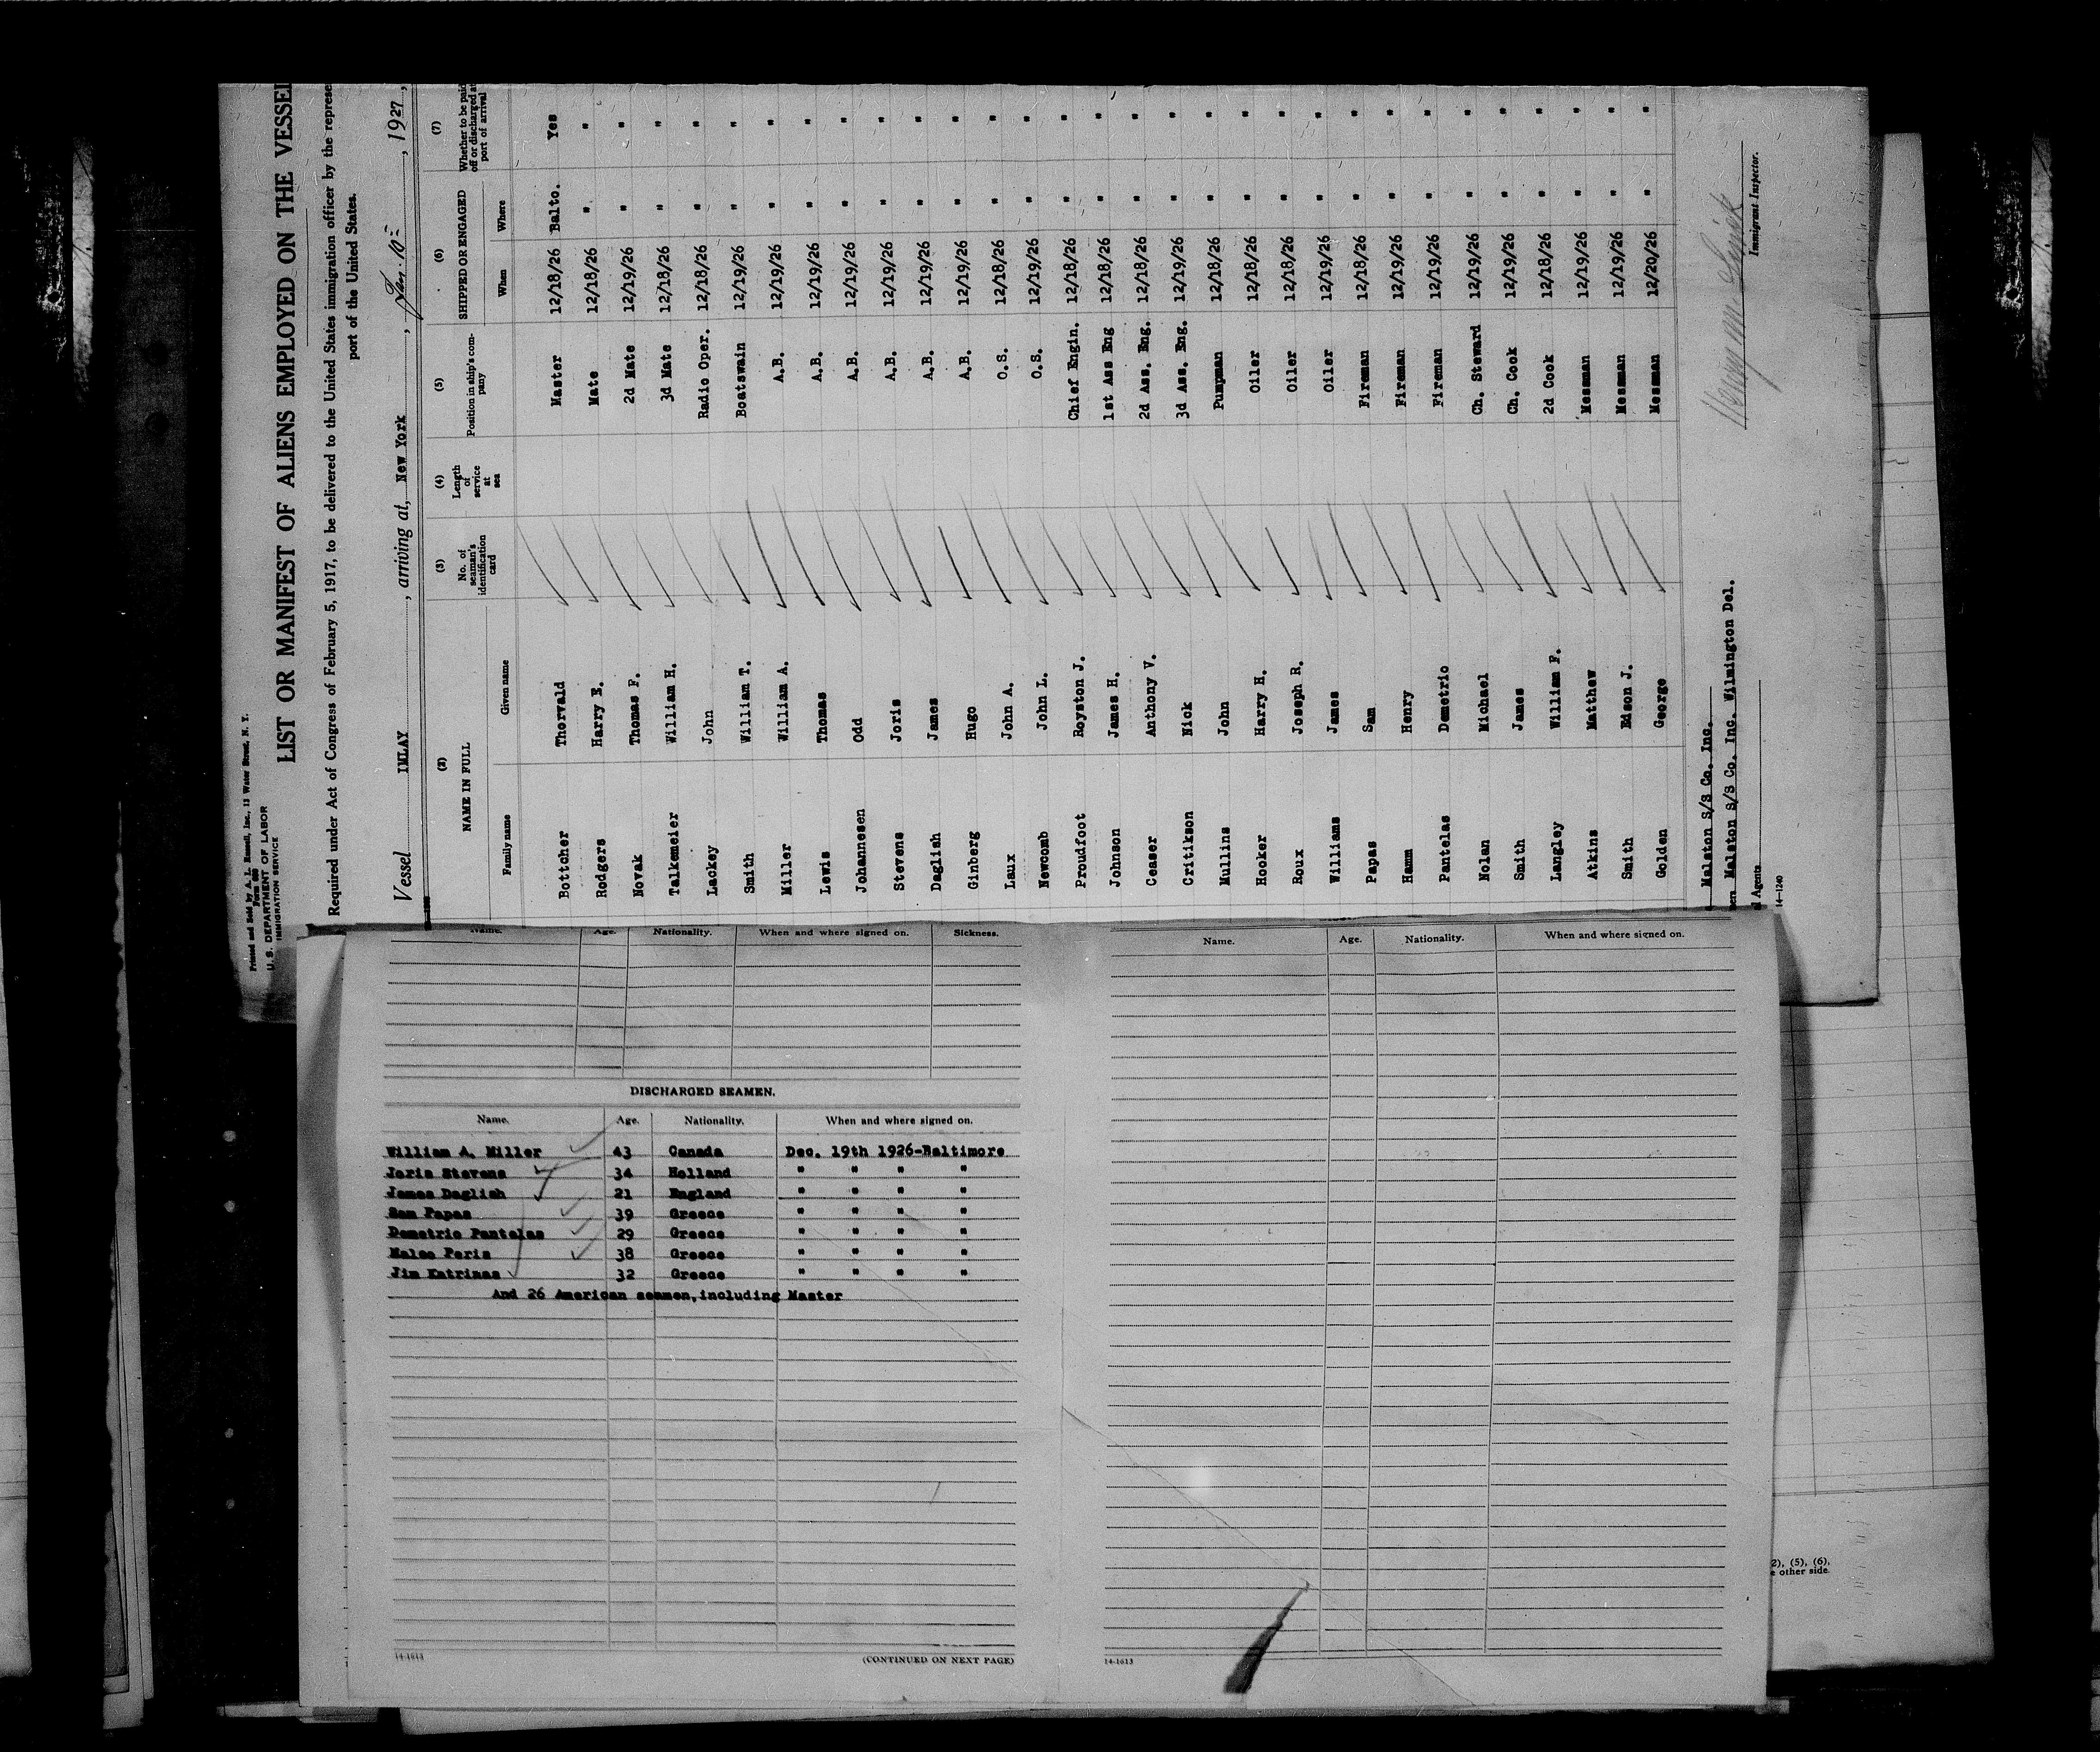 Printed and Sold by A. L. Russell, Inc., 13 Water Street, N. Y.
Form 680
U. S. DEPARTMENT OF LABOR
IMMIGRATION SERVICE
LIST OR MANIFEST OF ALIENS EMPLOYED ON THE VESSEL
Required under Act of Congress of February 5, 1917, to be delivered to the United States immigration officer by the represe
port of the United States.
Vessel IMLAY, arriving at, New York, Jan 10, 1927,
(2) (3) (4) (5) (6) (7)
NAME IN FULL No. of seaman's identification card Length of service at sea Position in ship's company SHIPPED OR ENGAGED Whether to be paid off or discharged at port of arrival
Family name Given name When Where
Bottcher Thorvald Master 12/18/26 Balto. Yes
Rodgers Harry E. Mate 12/18/26 " "
Novak Thomas F. 2d Mate 12/19/26 " "
Talkemeier William H. 3d Mate 12/18/26 " "
Lackey John Radio Oper. 12/18/26 " "
Smith William T. Boatswain 12/19/26 " "
Miller William A. A.B. 12/19/26 " "
Lewis Thomas A.B. 12/19/26 " "
Johannesen Odd A.B. 12/19/26 " "
Stevens Joris A.B. 12/19/26 " "
Daglish James A.B. 12/19/26 " "
Ginberg Hugo A.B. 12/19/26 " "
Laux John A. O.S. 12/18/26 " "
Newcomb John L. O.S. 12/19/26 " "
Proudfoot Royston J. Chief Engin. 12/18/26 " "
Johnson James H. 1st Ass Eng 12/18/26 " "
Ceaser Anthony V. 2d Ass. Eng. 12/18/26 " "
Critikson Nick 3d Ass. Eng. 12/19/26 " "
Mullins John Pumpman 12/18/26 " "
Hooker Harry H. Oiler 12/18/26 " "
Roux Joseph R. Oiler 12/18/26 " "
Williams James Oiler 12/19/26 " "
Papas Sam Fireman 12/18/26 " "
Hamm Henry Fireman 12/19/26 " "
Pantelas Demetrio Fireman 12/19/26 " "
Nolan Michael Ch. Steward 12/19/26 " "
Smith James Ch. Cook 12/19/26 " "
Langley William F. 2d Cook 12/18/26 " "
Atkins Matthew Messman 12/19/26 " "
Smith Edson J. Messman 12/19/26 " "
Golden George Messman 12/20/26 " "
Malston S/S Co. Inc.
Malston S/S Co. Inc. Wilmington Del.
l Agents
Immigrant Inspector.
14—1240
Name. Age. Nationality. When and where signed on. Sickness.
DISCHARGED SEAMEN.
Name. Age. Nationality. When and where signed on.
William A. Miller 43 Canada Dec. 19th 1926-Baltimore
Joris Stevens 34 Holland " " " "
James Daglish 21 England " " " "
Sam Papas 39 Greece " " " "
Demetrio Pantelas 29 Greece " " " "
Malee Peris 38 Greece " " " "
Jim Katrinas 32 Greece " " " "
And 26 American seamen,including Master
14-1613
(CONTINUED ON NEXT PAGE)
Name. Age. Nationality. When and where signed on.
14-1613
2), (5), (6),
e other side